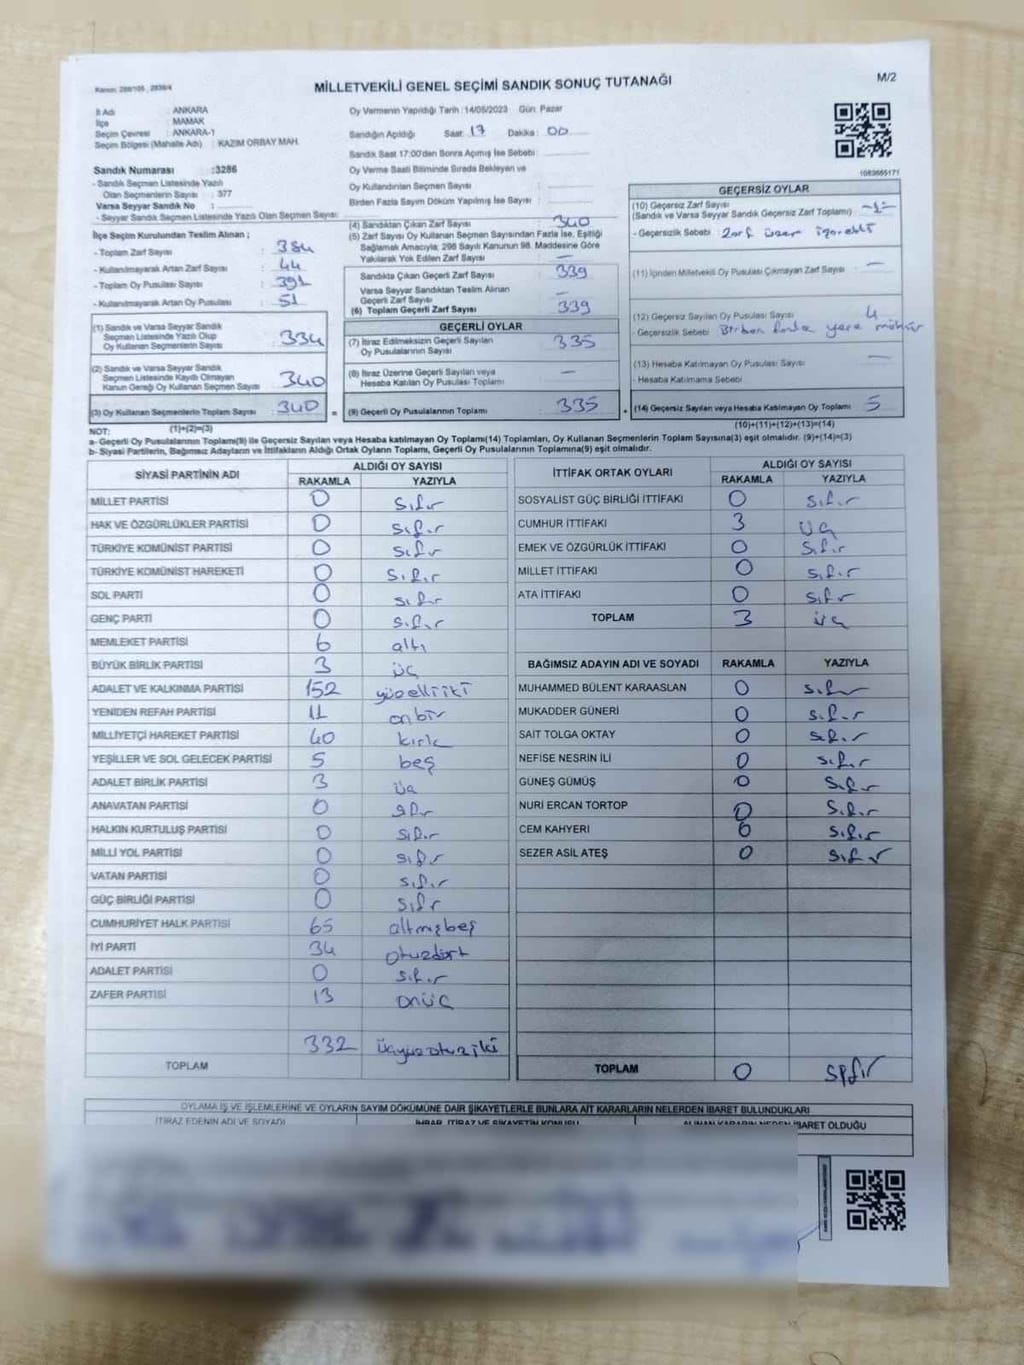 Kanun: 298/105 , 2839/4
MİLLETVEKİLİ GENEL SEÇİMİ SANDIK SONUÇ TUTANAĞI
M/2
İl Adı : ANKARA
İlçe : MAMAK
Seçim Çevresi : ANKARA-1
Seçim Bölgesi (Mahalle Adı) : KAZIM ORBAY MAH.
Sandık Numarası :3286
- Sandık Seçmen Listesinde Yazılı
Olan Seçmenlerin Sayısı : 377
Varsa Seyyar Sandık No :
- Seyyar Sandık Seçmen Listesinde Yazılı Olan Seçmen Sayısı:
Oy Vermenin Yapıldığı Tarih :14/05/2023 Gün: Pazar
Sandığın Açıldığı Saat: 17 Dakika : 00
Sandık Saat 17:00'den Sonra Açmış İse Sebebi:
Oy Verme Saati Bitiminde Sırada Bekleyen ve
Oy Kullandırılan Seçmen Sayısı :
Birden Fazla Sayım Döküm Yapılmış İse Sayısı :
1083665171
İlçe Seçim Kurulundan Teslim Alınan ;
- Toplam Zarf Sayısı : 384
- Kullanılmayarak Artan Zarf Sayısı : 44
- Toplam Oy Pusulası Sayısı : 391
- Kullanılmayarak Artan Oy Pusulası : 51
(1) Sandık ve Varsa Seyyar Sandık
Seçmen Listesinde Yazılı Olup
Oy Kullanan Seçmenlerin Sayısı : 334
(2) Sandık ve Varsa Seyyar Sandık
Seçmen Listesinde Kayıtlı Olmayan
Kanun Gereği Oy Kullanan Seçmen Sayısı : 340
(3) Oy Kullanan Seçmenlerin Toplam Sayısı : 340
(1)+(2)=(3)
(4) Sandıktan Çıkan Zarf Sayısı : 340
(5) Zarf Sayısı Oy Kullanan Seçmen Sayısından Fazla İse, Eşitliği
Sağlamak Amacıyla; 298 Sayılı Kanunun 98. Maddesine Göre
Yakılarak Yok Edilen Zarf Sayısı : —
Sandıkta Çıkan Geçerli Zarf Sayısı : 339
Varsa Seyyar Sandıktan Teslim Alınan
Geçerli Zarf Sayısı : —
(6) Toplam Geçerli Zarf Sayısı : 339
GEÇERLİ OYLAR
(7) İtiraz Edilmeksizin Geçerli Sayılan
Oy Pusulalarının Sayısı : 335
(8) İtiraz Üzerine Geçerli Sayılan veya
Hesaba Katılan Oy Pusulası Toplamı : —
= (9) Geçerli Oy Pusulalarının Toplamı : 335
GEÇERSİZ OYLAR
(10) Geçersiz Zarf Sayısı
(Sandık ve Varsa Seyyar Sandık Geçersiz Zarf Toplamı) : -1-
- Geçersizlik Sebebi : Zarf üzeri işaretli
(11) İçinden Milletvekili Oy Pusulası Çıkmayan Zarf Sayısı : —
(12) Geçersiz Sayılan Oy Pusulası Sayısı : 4
- Geçersizlik Sebebi : Birden fazla yere mühür
(13) Hesaba Katılmayan Oy Pusulası Sayısı : —
- Hesaba Katılmama Sebebi :
+ (14) Geçersiz Sayılan veya Hesaba Katılmayan Oy Toplamı : 5
(10)+(11)+(12)+(13)=(14)
NOT:
a- Geçerli Oy Pusulalarının Toplamı(9) ile Geçersiz Sayılan veya Hesaba katılmayan Oy Toplamı(14) Toplamları, Oy Kullanan Seçmenlerin Toplam Sayısına(3) eşit olmalıdır. (9)+(14)=(3)
b- Siyasi Partilerin, Bağımsız Adayların ve İttifakların Aldığı Ortak Oyların Toplamı, Geçerli Oy Pusulalarının Toplamına(9) eşit olmalıdır.
SİYASİ PARTİNİN ADI ALDIĞI OY SAYISI
RAKAMLA YAZIYLA
MİLLET PARTİSİ 0 sıfır
HAK VE ÖZGÜRLÜKLER PARTİSİ 0 sıfır
TÜRKİYE KOMÜNİST PARTİSİ 0 sıfır
TÜRKİYE KOMÜNİST HAREKETİ 0 sıfır
SOL PARTİ 0 sıfır
GENÇ PARTİ 0 sıfır
MEMLEKET PARTİSİ 6 altı
BÜYÜK BİRLİK PARTİSİ 3 üç
ADALET VE KALKINMA PARTİSİ 152 yüzelliiki
YENİDEN REFAH PARTİSİ 11 onbir
MİLLİYETÇİ HAREKET PARTİSİ 40 kırk
YEŞİLLER VE SOL GELECEK PARTİSİ 5 beş
ADALET BİRLİK PARTİSİ 3 üç
ANAVATAN PARTİSİ 0 sıfır
HALKIN KURTULUŞ PARTİSİ 0 sıfır
MİLLİ YOL PARTİSİ 0 sıfır
VATAN PARTİSİ 0 sıfır
GÜÇ BİRLİĞİ PARTİSİ 0 sıfır
CUMHURİYET HALK PARTİSİ 65 altmışbeş
İYİ PARTİ 34 otuzdört
ADALET PARTİSİ 0 sıfır
ZAFER PARTİSİ 13 onüç
TOPLAM 332 üçyüzotuziki
İTTİFAK ORTAK OYLARI ALDIĞI OY SAYISI
RAKAMLA YAZIYLA
SOSYALİST GÜÇ BİRLİĞİ İTTİFAKI 0 sıfır
CUMHUR İTTİFAKI 3 üç
EMEK VE ÖZGÜRLÜK İTTİFAKI 0 sıfır
MİLLET İTTİFAKI 0 sıfır
ATA İTTİFAKI 0 sıfır
TOPLAM 3 üç
BAĞIMSIZ ADAYIN ADI VE SOYADI RAKAMLA YAZIYLA
MUHAMMED BÜLENT KARAASLAN 0 sıfır
MUKADDER GÜNERİ 0 sıfır
SAİT TOLGA OKTAY 0 sıfır
NEFİSE NESRİN İLİ 0 sıfır
GÜNEŞ GÜMÜŞ 0 sıfır
NURİ ERCAN TORTOP 0 sıfır
CEM KAHYERİ 0 sıfır
SEZER ASİL ATEŞ 0 sıfır
TOPLAM 0 sıfır
OYLAMA İŞ VE İŞLEMLERİNE VE OYLARIN SAYIM DÖKÜMÜNE DAİR ŞİKAYETLERLE BUNLARA AİT KARARLARIN NELERDEN İBARET BULUNDUKLARI
İTİRAZ EDENİN ADI VE SOYADI İHBAR, İTİRAZ VE ŞİKAYETİN KONUSU ALINAN KARARIN NEDEN İBARET OLDUĞU